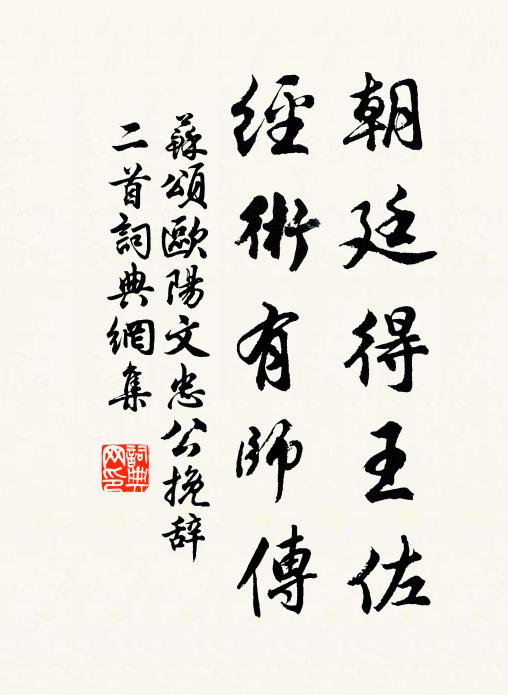 朝廷得王佐
經術有師傳
蘇頌歐陽文忠公挽辞
二首詞典網集
詞典
网印